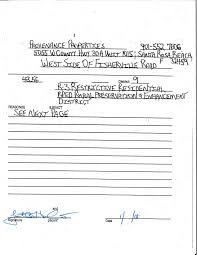 Provenance Properties 901-552 7806
5055 W County Hwy 30A Unit N15, Santa Rosa Beach
F 32459
West Side Of Fisherville Road
48.56 9
R-3 Restrictive Residential
RPED Rural Preservation & Enhancement
District
REASONS
See Next Page
Signature